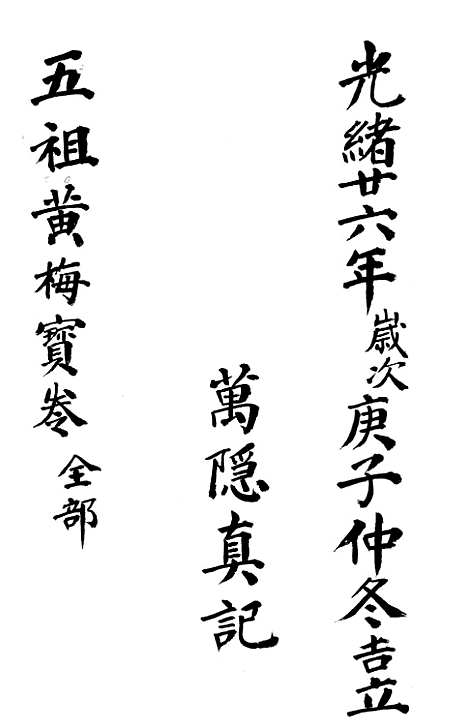 光緒廿六年歲次庚子仲冬吉立
萬隐真記
五祖黄梅寳卷全部